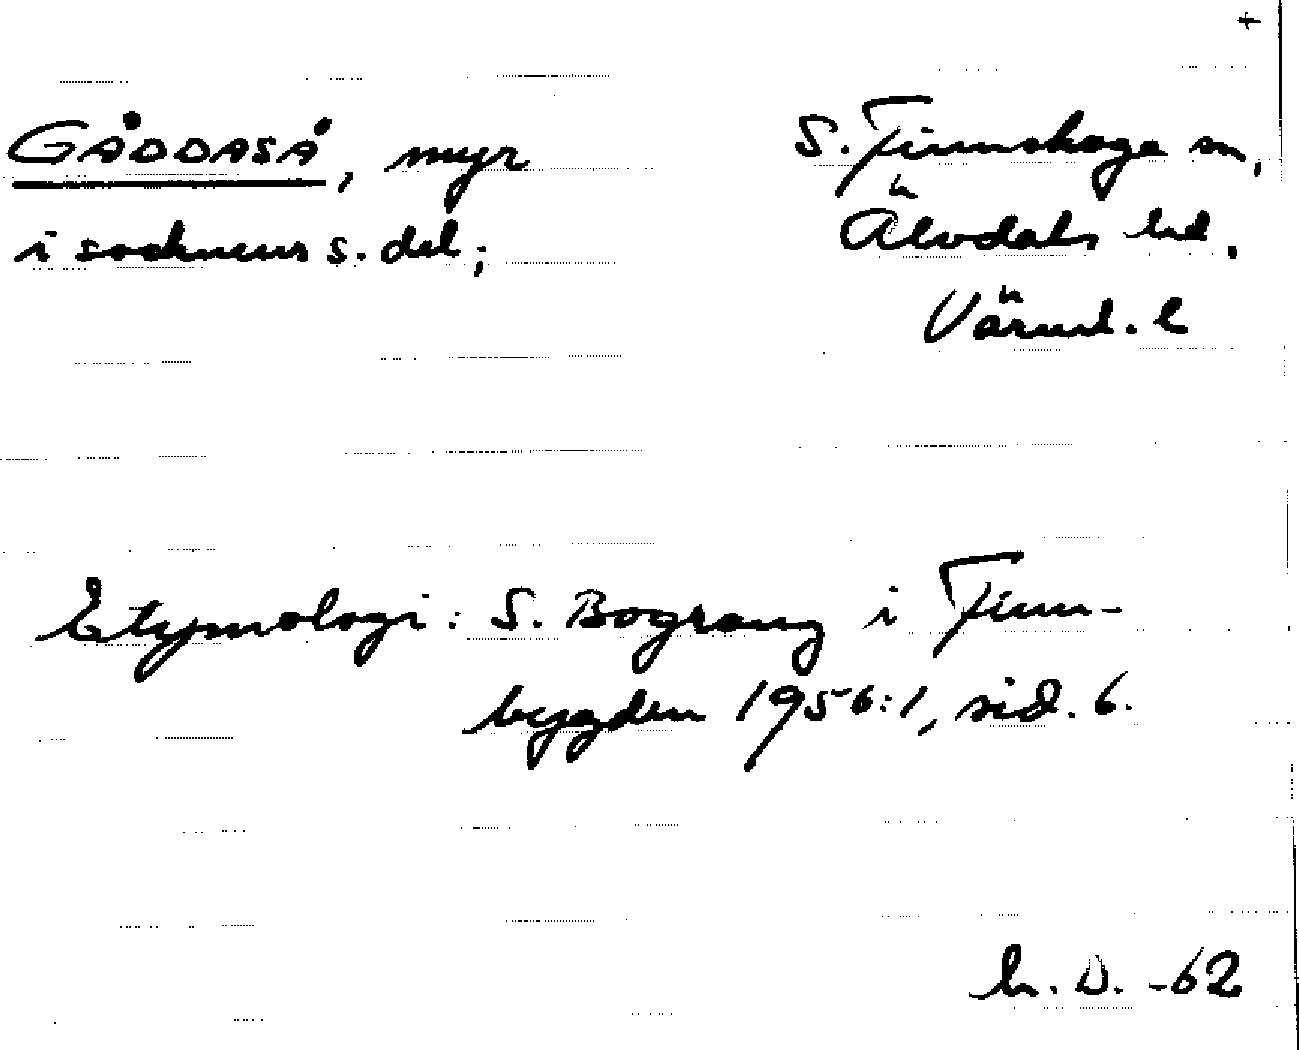 +
GÅDDASÅ, myr
i socknens s. del;
S. Finnskoga sn,
Älvdals hd.
Värml. l
Etymologi: S. Bograng i Finn-
bygden 1956:1, sid. 6.
D. -62